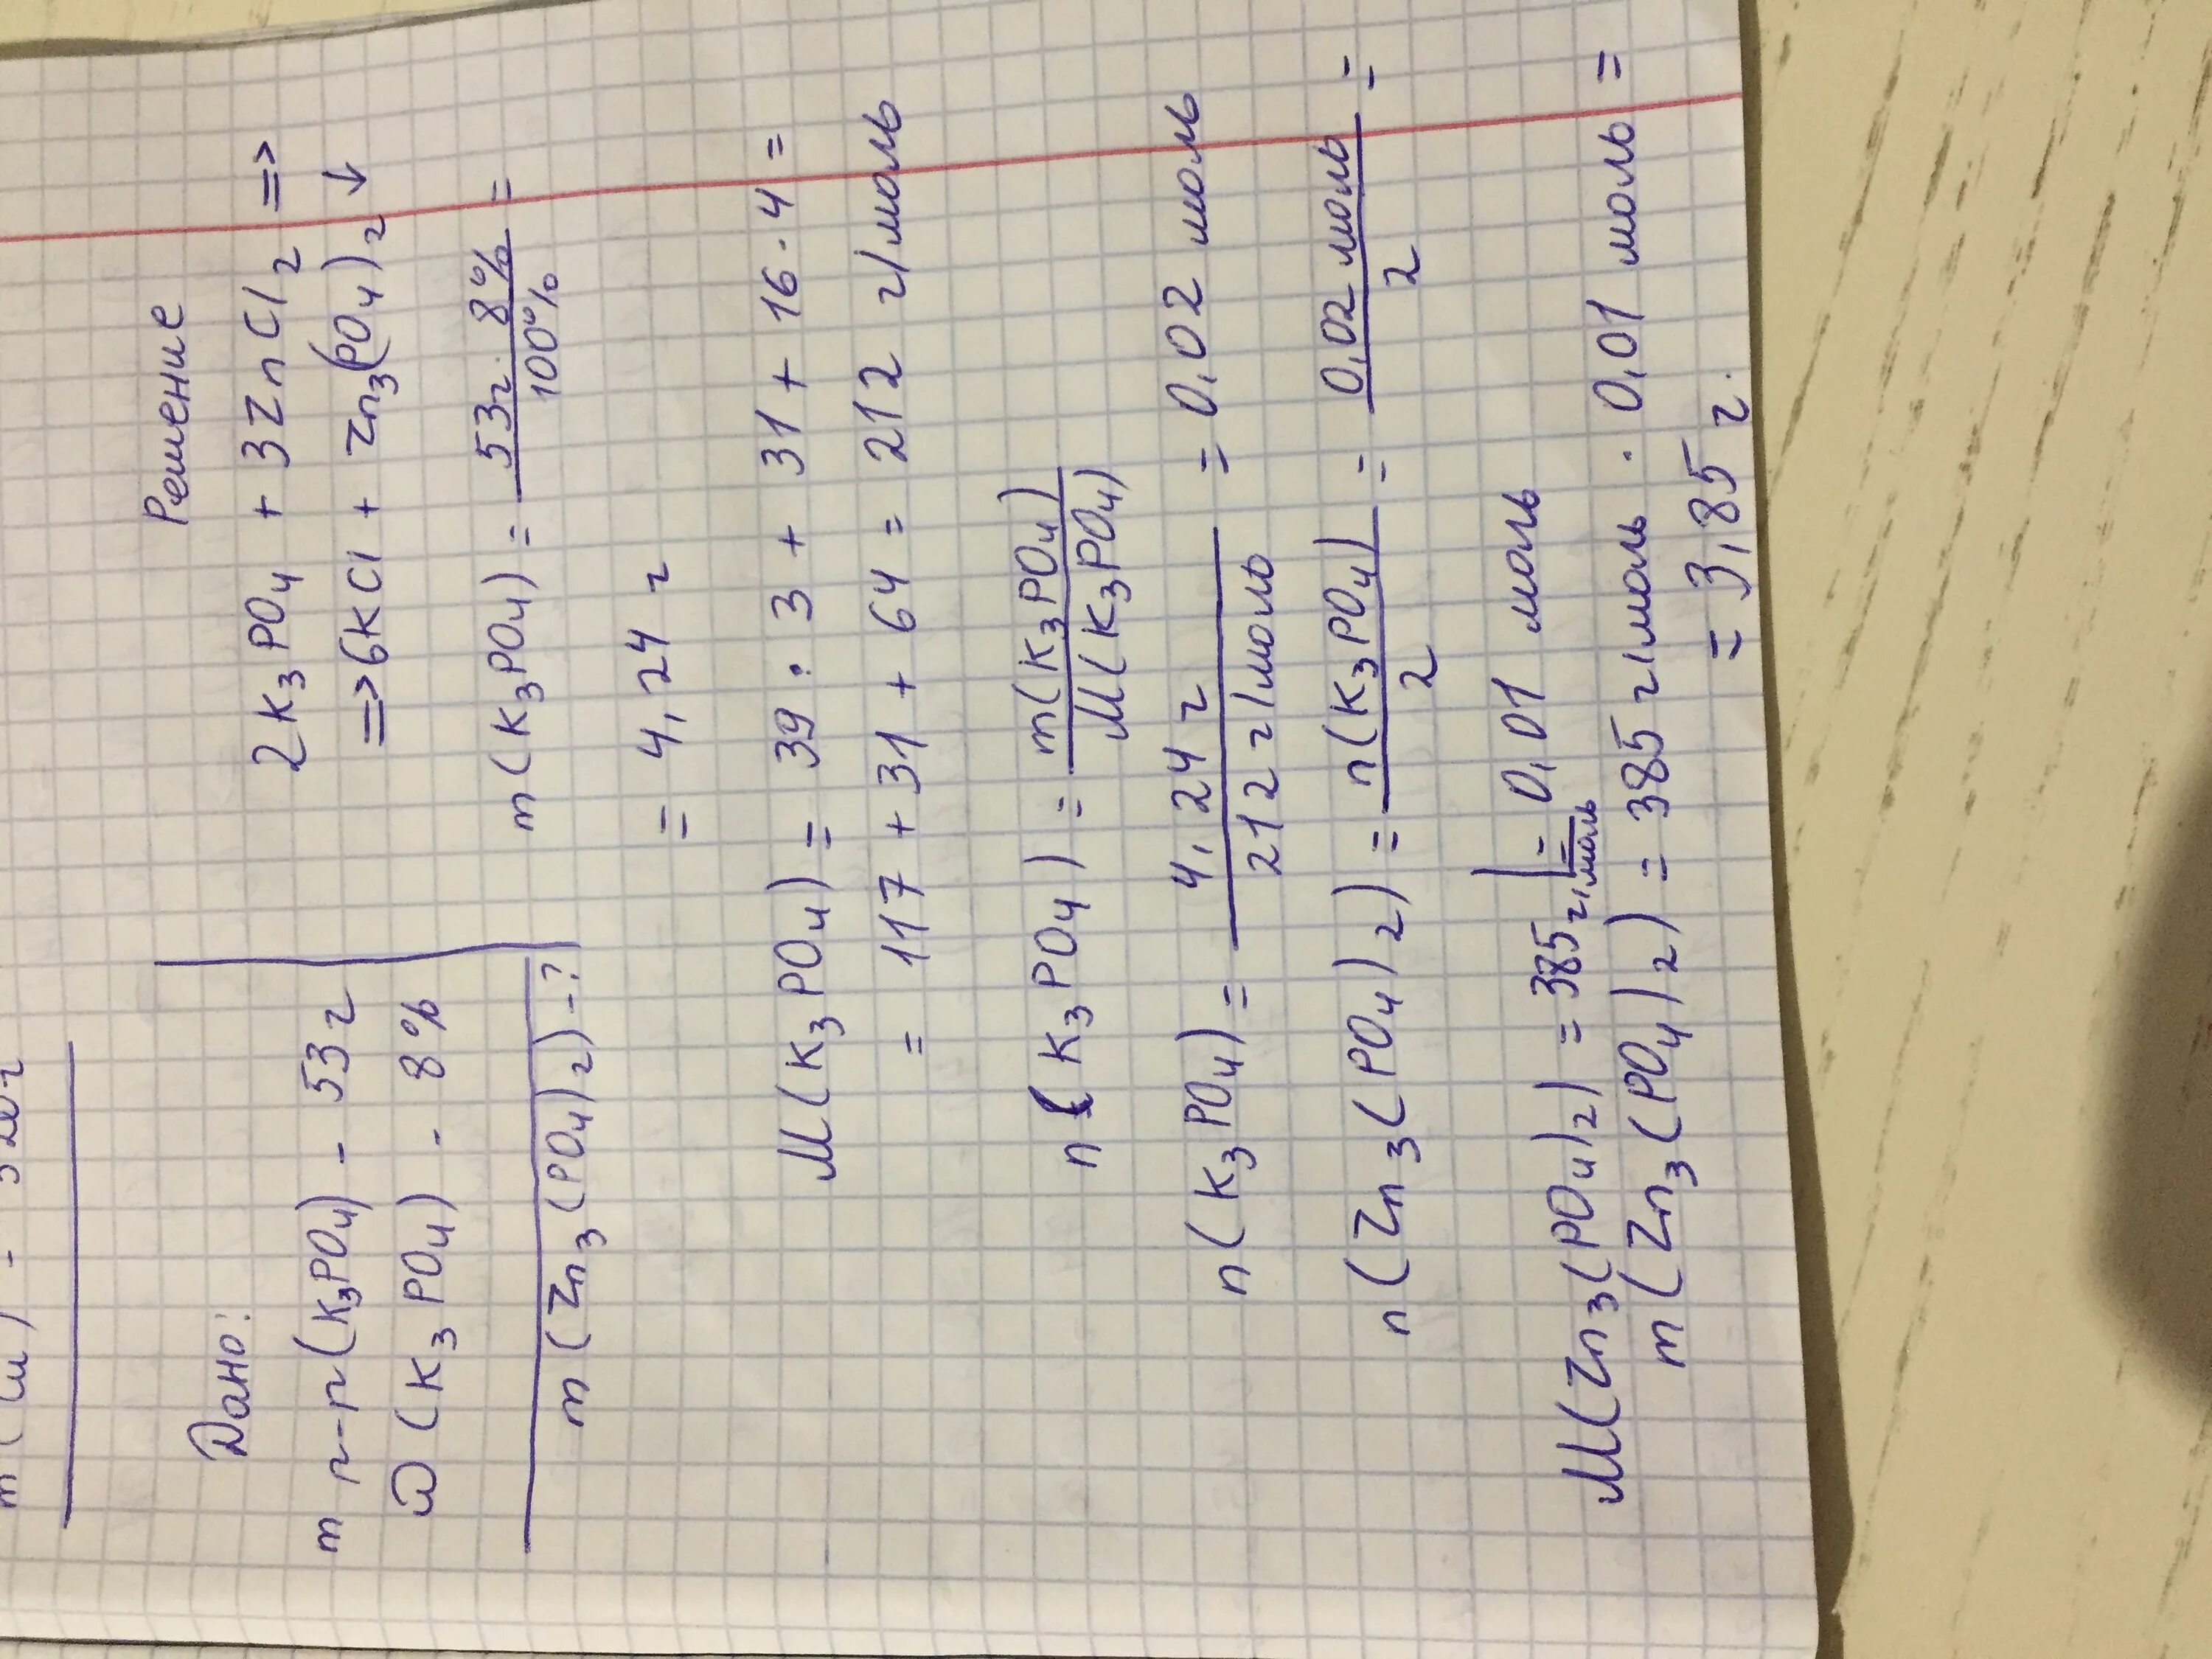 Дано:
m р-р(K₃PO₄) - 53 г
ω(K₃PO₄) - 8%
m(Zn₃(PO₄)₂) - ?
Решение
2K₃PO₄ + 3ZnCl₂ =>
=> 6KCl + Zn₃(PO₄)₂ ↓
m(K₃PO₄) = 53г · 8% / 100% =
= 4,24 г
M(K₃PO₄) = 39 · 3 + 31 + 16 · 4 =
= 117 + 31 + 64 = 212 г/моль
n(K₃PO₄) = m(K₃PO₄) / M(K₃PO₄)
n(K₃PO₄) = 4,24 г / 212 г/моль = 0,02 моль
n(Zn₃(PO₄)₂) = n(K₃PO₄) / 2 = 0,02 моль / 2 =
= 0,01 моль
M(Zn₃(PO₄)₂) = 385 г/моль
m(Zn₃(PO₄)₂) = 385 г/моль · 0,01 моль =
= 3,85 г.